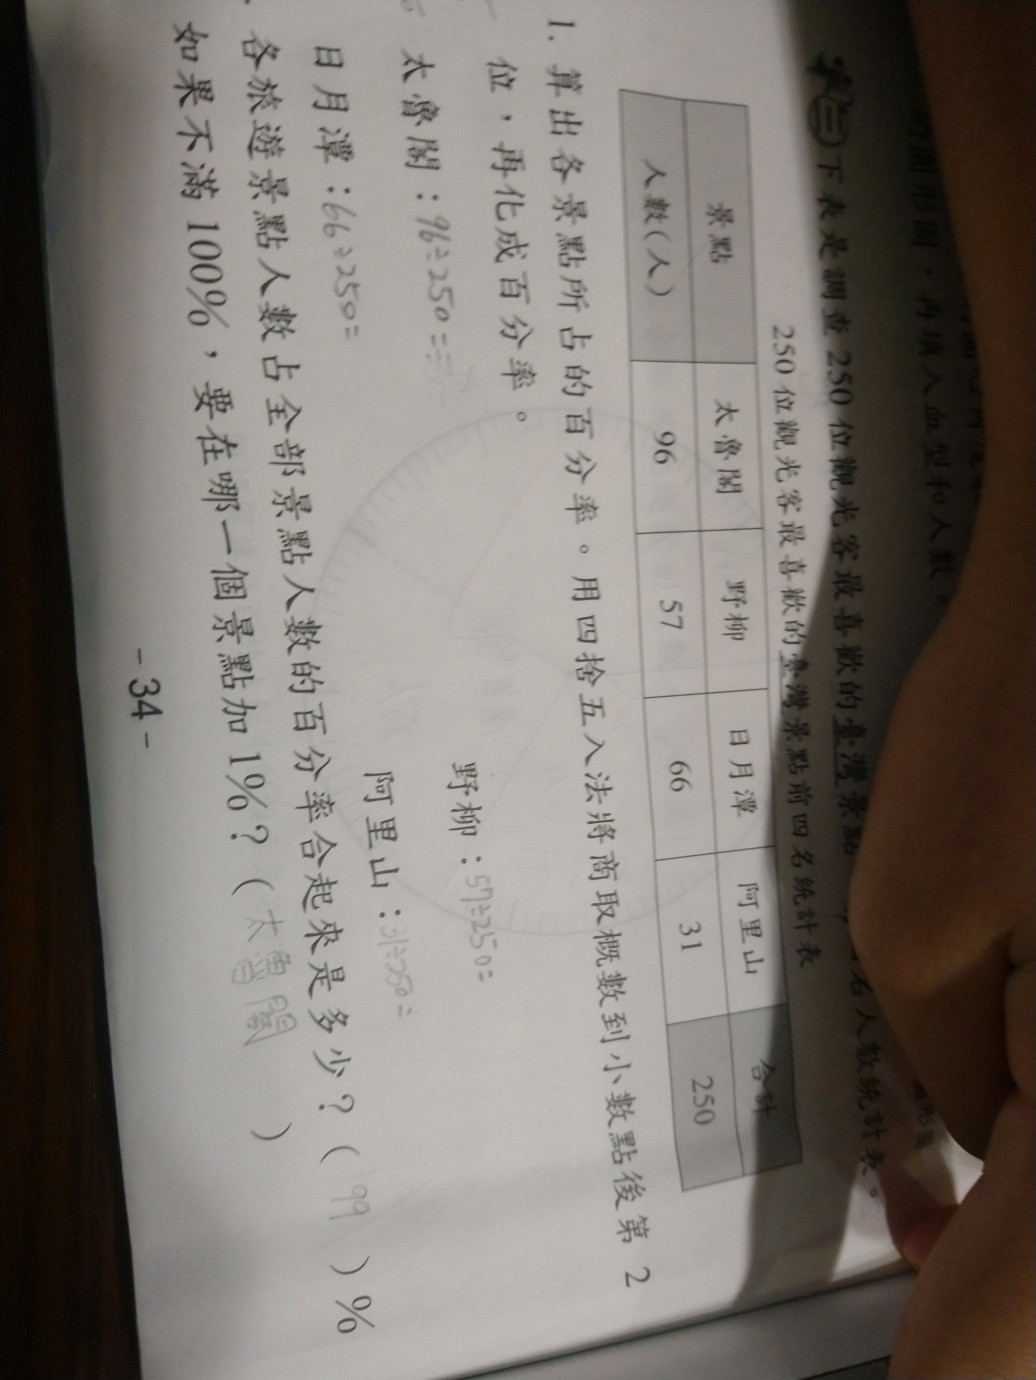 的圖形圖，再填入血型和人數。
㊂下表是調查 250 位觀光客最喜歡的臺灣景點 名人數統計表。
250 位觀光客最喜歡的臺灣景點前四名統計表
景點 太魯閣 野柳 日月潭 阿里山 合計
人數(人) 96 57 66 31 250
1. 算出各景點所占的百分率。用四捨五入法將商取概數到小數點後第 2
位，再化成百分率。
太魯閣：96÷250= 野柳：57÷250=
日月潭：66÷250= 阿里山：31÷250=
各旅遊景點人數占全部景點人數的百分率合起來是多少？( 99 )%
如果不滿 100%，要在哪一個景點加 1%？( 太魯閣 )
-34-